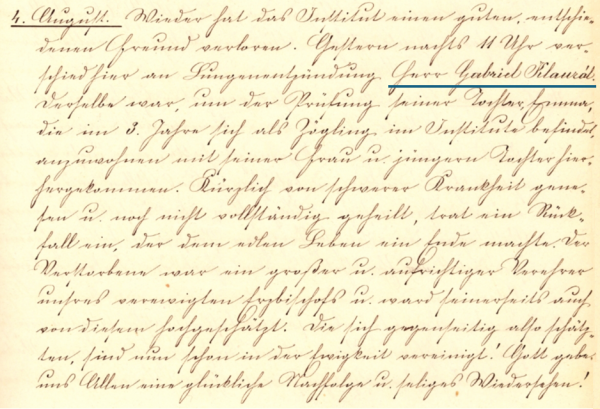 4. August. Wieder hat das Institut einen guten, entschie-
denen Freund verloren. Gestern nachts 11 Uhr ver-
schied hier an Lungenentzündung Herr Gabriel Klauzál.
Derselbe war, um der Prüfung seiner Tochter Emma,
die im 3. Jahre sich als Zögling im Institute befindet,
anzuwohnen mit seiner Frau u. jüngern Tochter hier-
hergekommen. Kürzlich von schwerer Krankheit gene-
sen u. noch nicht vollständig geheilt, trat ein Rück-
fall ein, der dem edlen Leben ein Ende machte. Der
Verstorbene war ein großer u. aufrichtiger Verehrer
unsres verewigten Erzbischofs u. ward seinerseits auch
von diesem hochgeschätzt. Die sich gegenseitig also schätz-
ten, sind nun schon in der Ewigkeit vereinigt! Gott gebe
uns Allen eine glückliche Nachfolge u. seliges Wiedersehen!